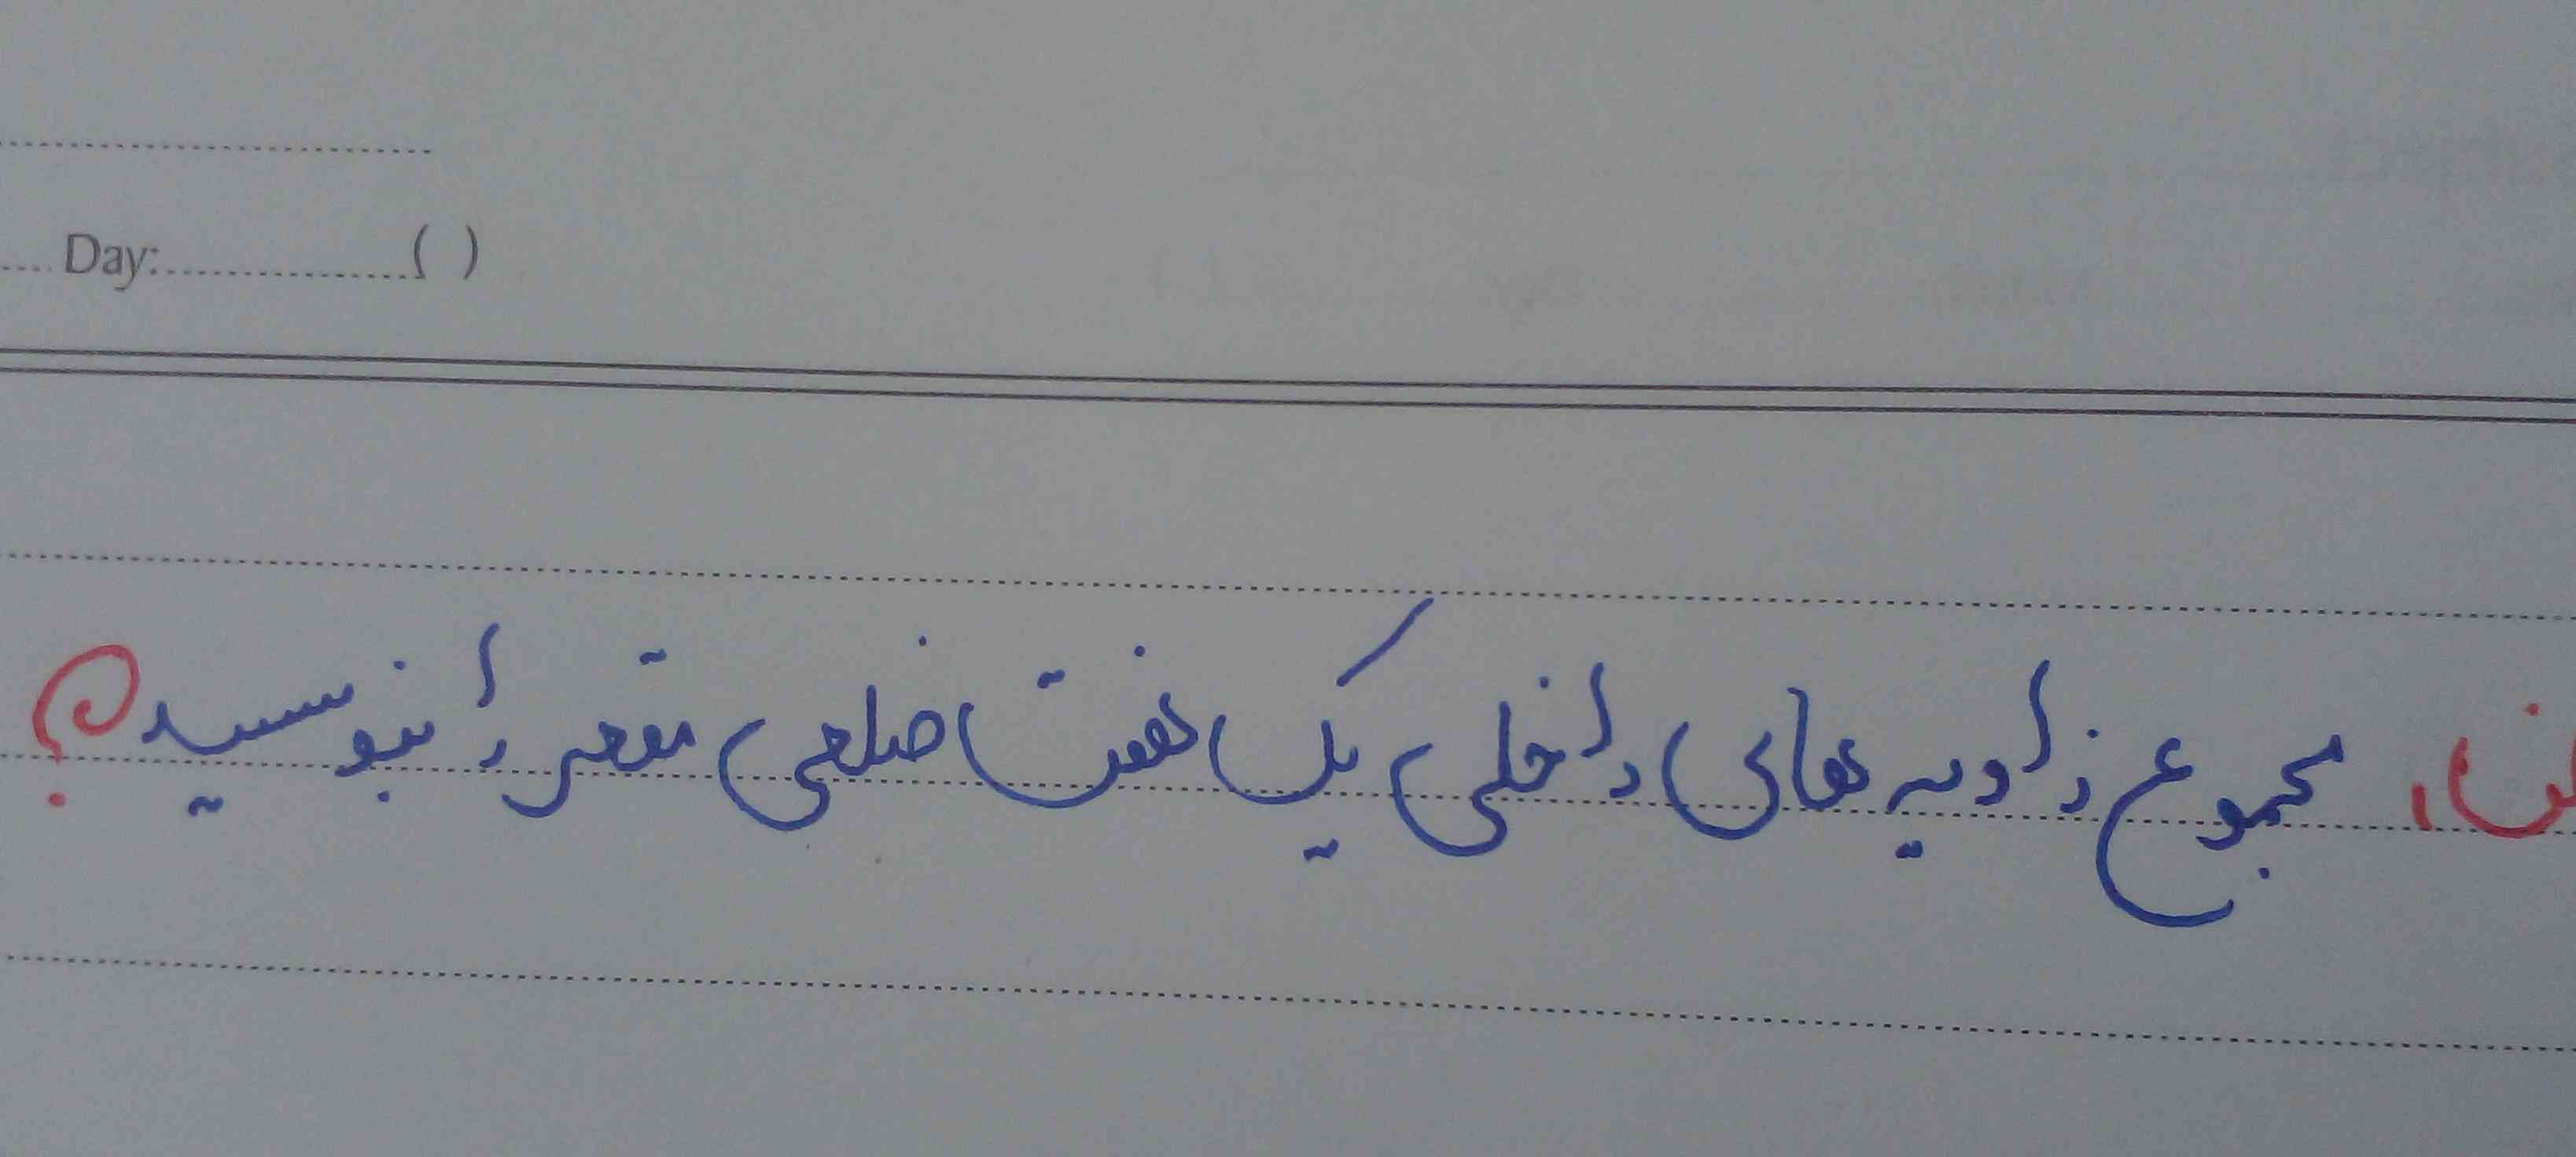 Day: ( )
مجموع زاویه های داخلی یک هفت ضلعی مقعر را بنویسید؟